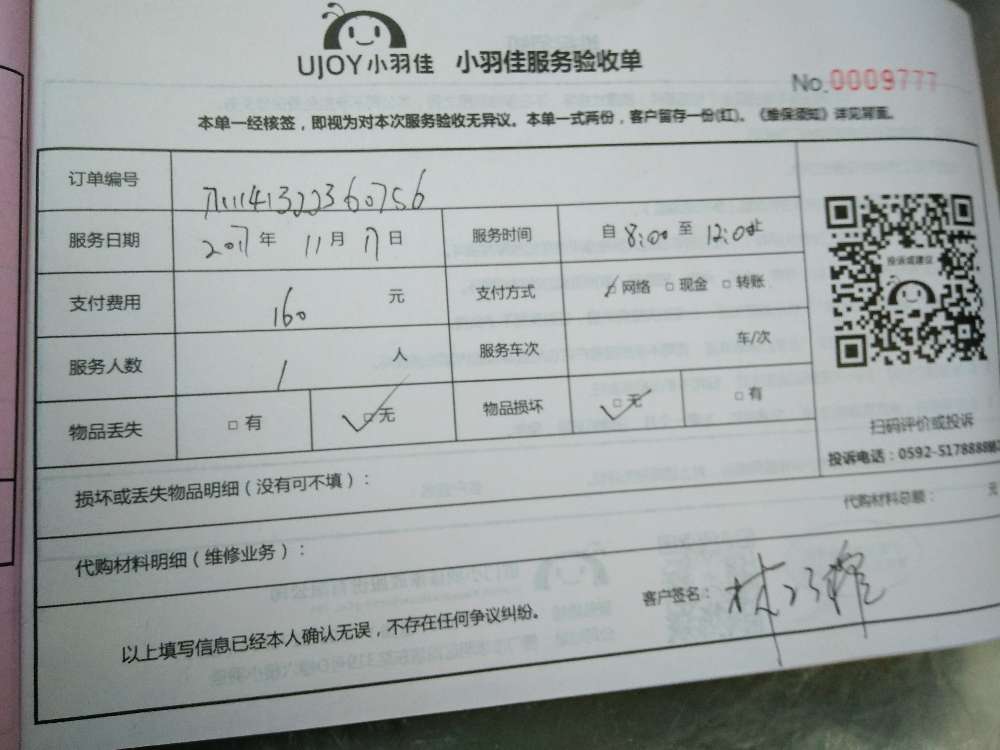 UJOY小羽佳 小羽佳服务验收单
No.0009777
本单一经核签，即视为对本次服务验收无异议。本单一式两份，客户留存一份(红)。《维保须知》详见背面。
订单编号
服务日期 2017年 11月 17日 服务时间 自 8:00 至 12:00止
支付费用 160 元 支付方式 ☑网络 □现金 □转账
服务人数 1 人 服务车次 车/次
物品丢失 □有 ☑无 物品损坏 ☑无 □有
投诉或建议
扫码评价或投诉
投诉电话：0592-5178888
损坏或丢失物品明细（没有可不填）：
代购材料总额： 元
代购材料明细（维修业务）：
客户签名：
以上填写信息已经本人确认无误，不存在任何争议纠纷。